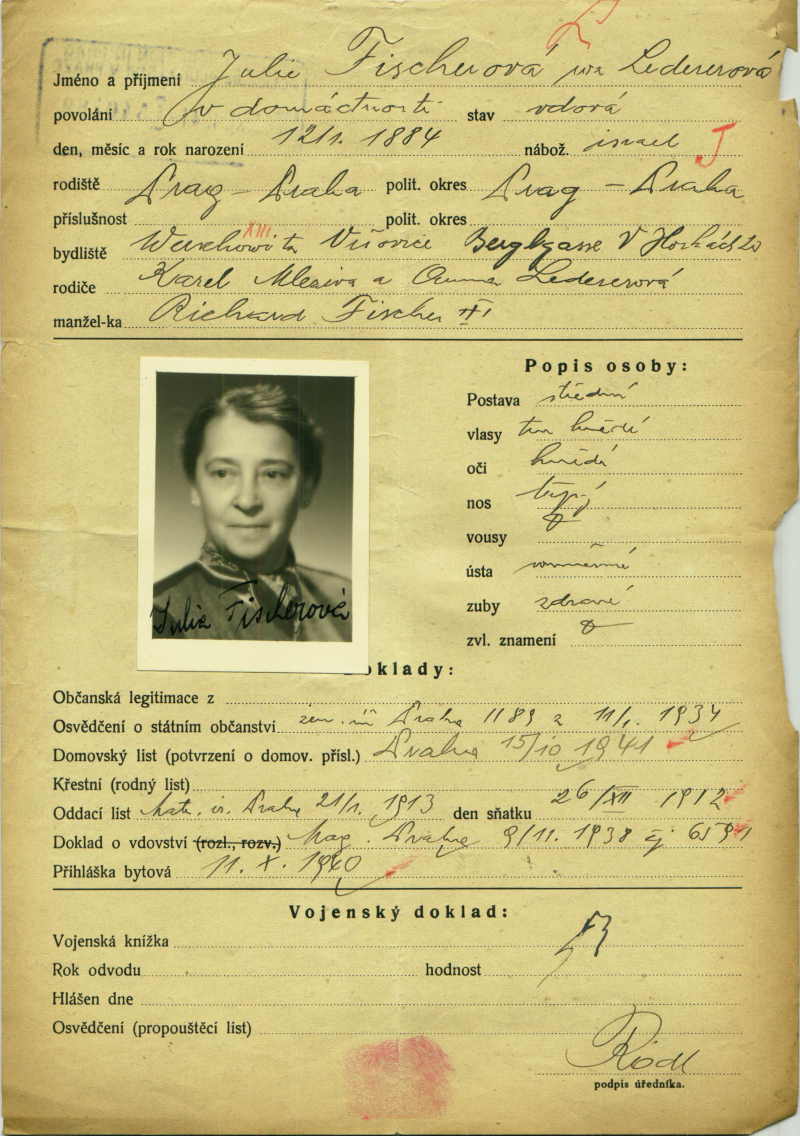 Jméno a příjmení Julie Fischerová Ledererová
povolání v domácnosti stav vdová
den, měsíc a rok narození 12/1. 1884 nábož. israel J
rodiště Prag – Praha polit. okres Prag – Praha
příslušnost polit. okres
XIII
bydliště Vršovice Berglgasse V Horkách
rodiče Karel a Anna Ledererová
manžel-ka Richard Fischer
Popis osoby:
Postava střední
vlasy tm hnědé
oči hnědé
nos tupý
vousy
ústa
zuby zdravé
zvl. znamení
Julie Fischerová
Doklady:
Občanská legitimace z
Osvědčení o státním občanství zem. úř Praha 1189 z 11/1. 1934
Domovský list (potvrzení o domov. přísl.) Praha 15/10 1941
Křestní (rodný list)
Oddací list Praha 21/1. 1913 den sňatku 26/XII 1912
Doklad o vdovství (rozl., rozv.) Mag. Praha 9/11. 1938 čj
Přihláška bytová 11. X. 1940
Vojenský doklad:
Vojenská knížka
Rok odvodu hodnost
Hlášen dne
Osvědčení (propouštěcí list)
Rödl
podpis úředníka.